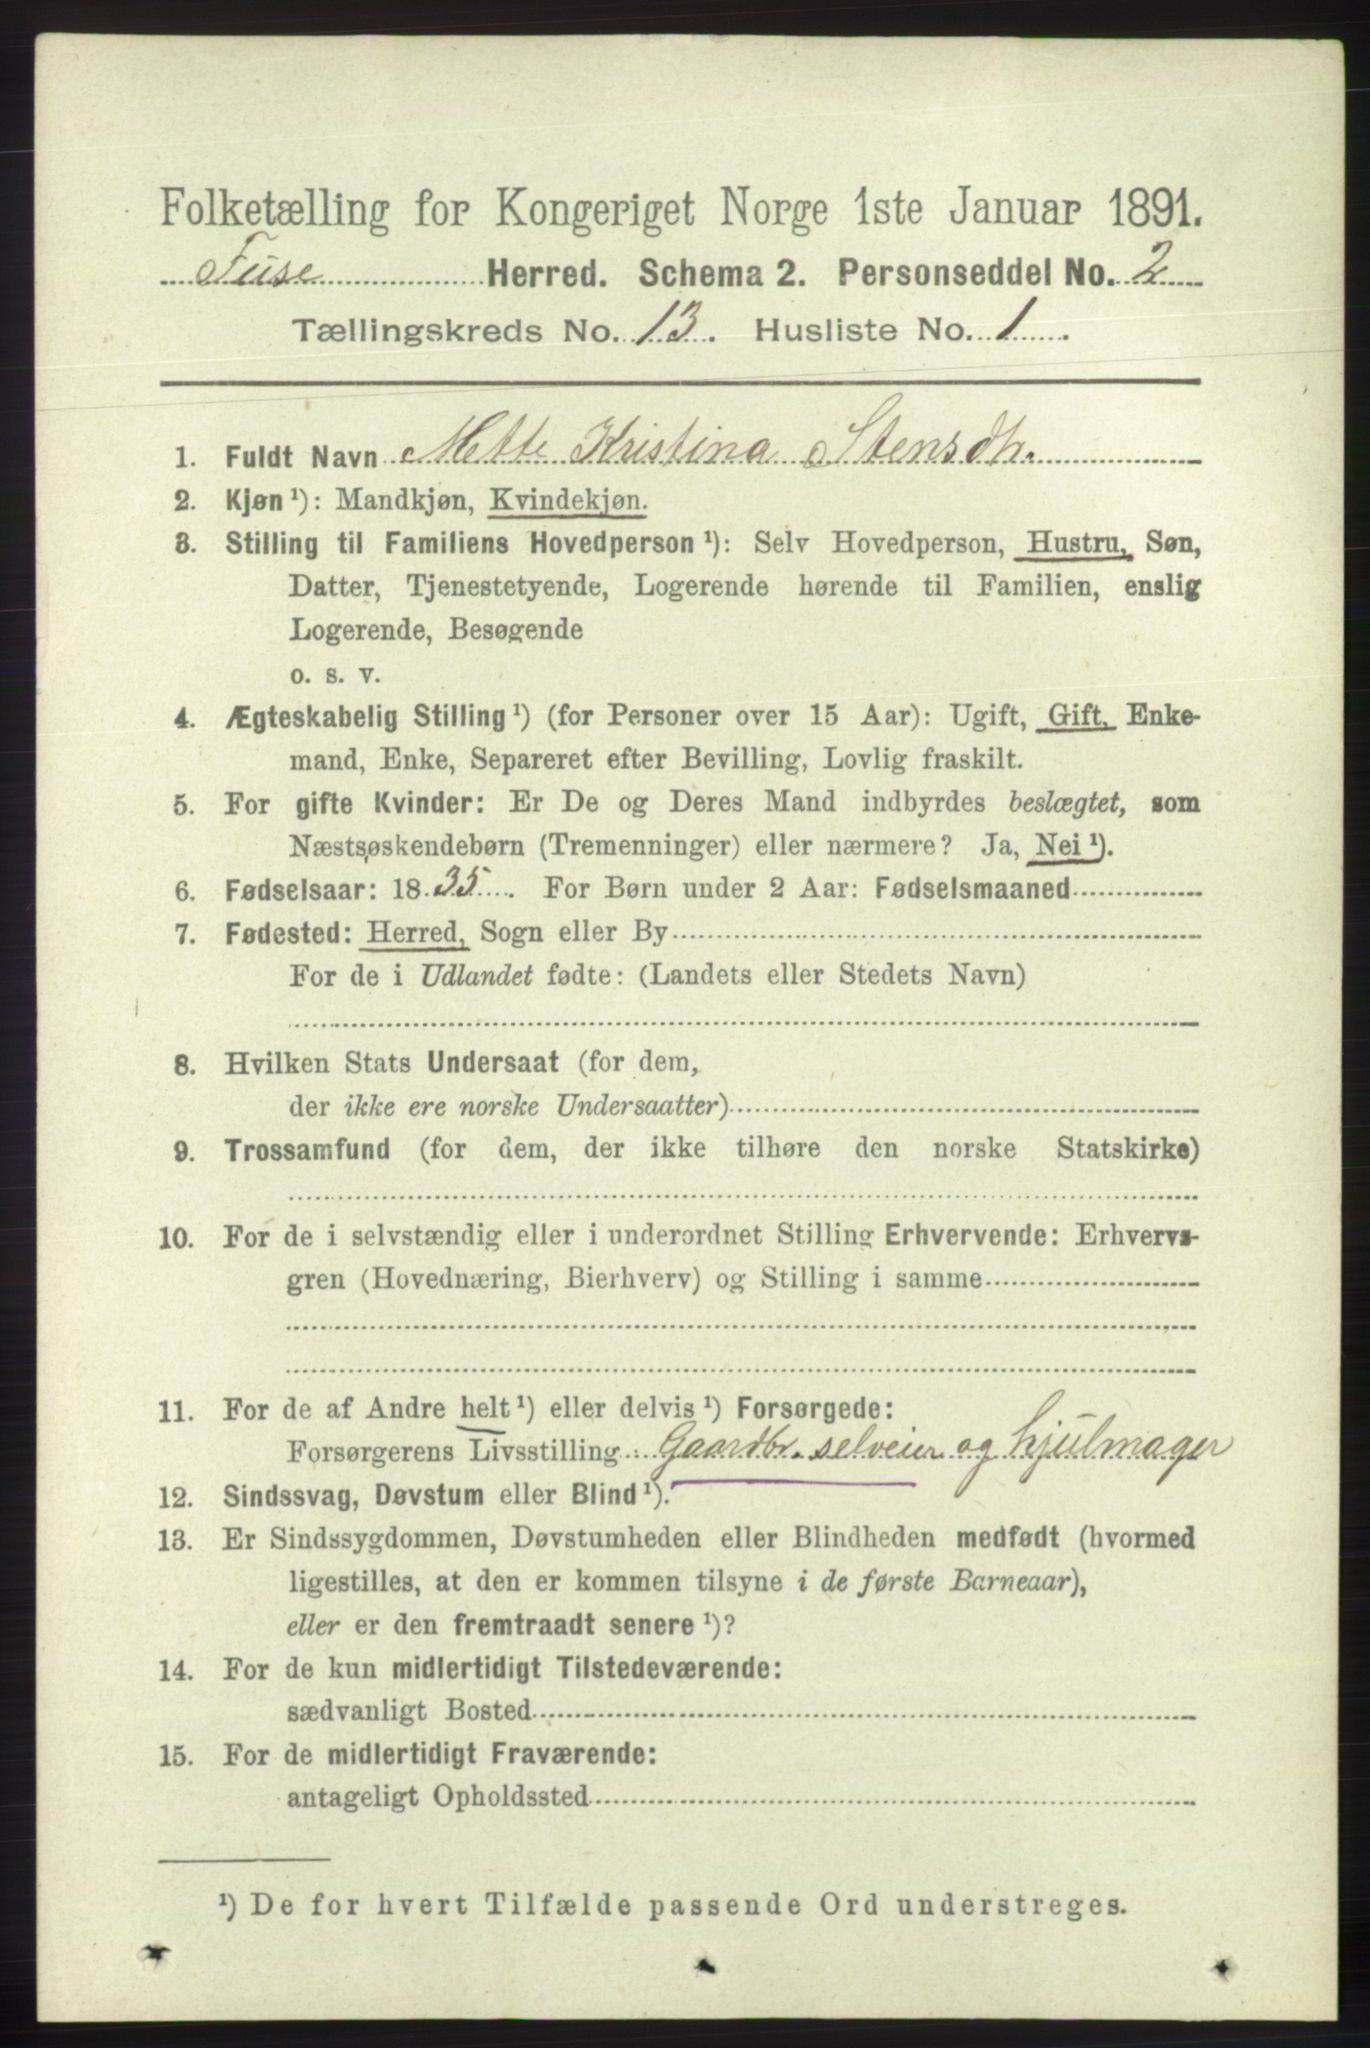 Folketælling for Kongeriget Norge 1ste Januar 1891.
Fuse Herred. Schema 2. Personseddel No. 2
Tællingskreds No. 13. Husliste No. 1.
1. Fuldt Navn Mette Kristina Stensdtr.
2. Kjøn¹): Mandkjøn, Kvindekjøn.
3. Stilling til Familiens Hovedperson¹): Selv Hovedperson, Hustru, Søn,
Datter, Tjenestetyende, Logerende hørende til Familien, enslig
Logerende, Besøgende
o. s. v.
4. Ægteskabelig Stilling¹) (for Personer over 15 Aar): Ugift, Gift, Enke-
mand, Enke, Separeret efter Bevilling, Lovlig fraskilt.
5. For gifte Kvinder: Er De og Deres Mand indbyrdes beslægtet, som
Næstsøskendebørn (Tremenninger) eller nærmere? Ja, Nei¹).
6. Fødselsaar: 1835. For Børn under 2 Aar: Fødselsmaaned
7. Fødested: Herred, Sogn eller By
For de i Udlandet fødte: (Landets eller Stedets Navn)
8. Hvilken Stats Undersaat (for dem,
der ikke ere norske Undersaatter)
9. Trossamfund (for dem, der ikke tilhøre den norske Statskirke)
10. For de i selvstændig eller i underordnet Stilling Erhvervende: Erhvervs-
gren (Hovednæring, Bierhverv) og Stilling i samme
11. For de af Andre helt¹) eller delvis¹) Forsørgede:
Forsørgerens Livsstilling: Gaardbr. selveier og hjulmager
12. Sindssvag, Døvstum eller Blind¹).
13. Er Sindssygdommen, Døvstumheden eller Blindheden medfødt (hvormed
ligestilles, at den er kommen tilsyne i de første Barneaar),
eller er den fremtraadt senere¹)?
14. For de kun midlertidigt Tilstedeværende:
sædvanligt Bosted
15. For de midlertidigt Fraværende:
antageligt Opholdssted
¹) De for hvert Tilfælde passende Ord understreges.